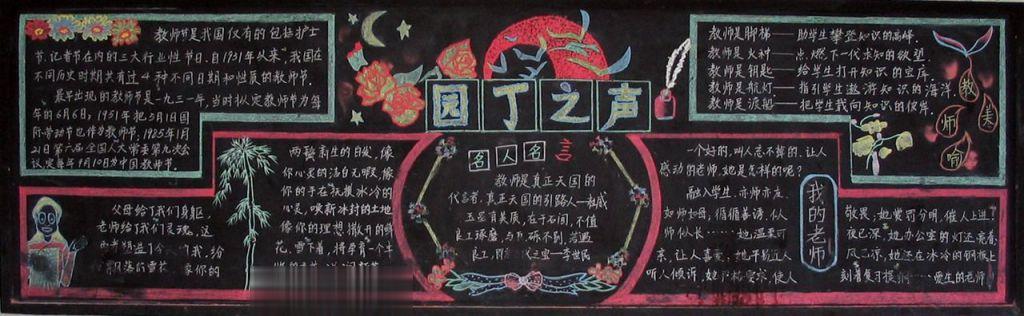 教师节是我国仅有的包括护士
节、记者节在内的三大行业性节日。自1931年以来，我国在
不同历史时期共有过4种不同日期和性质的教师节。
最早出现的教师节是一九三一年，当时拟定教师节为每
年的6月6日；1951年把5月1日国
际劳动节也作为教师节，1985年1月
21日第六届全国人大常委第九次会
议定每年9月10日为中国教师节。
园丁之声
教师是脚梯——助学生攀登知识的高峰。
教师是火种——点燃下一代求知的欲望
教师是钥匙——给学生打开知识的宝库。
教师是航灯——指引学生遨游知识的海洋
教师是渡船——把学生载向知识的彼岸。
教
师
美
父母给了我们身躯，
老师给了我们灵魂，这
两鬓新生的白发，像
你心灵的洁白无暇，像
你的手在抚摸冰冷的
心灵，唤新冰封的土地
像你的理想撒开的鲜
花。
名人名言
教师是真正天国的
代言者，真正天国的引路人——权威
玉虽有美质，在于石间，不值
良工琢磨，与瓦砾不别，若遇
良工，李世民
我的老师
一个好的，叫人忘不掉的，让人
感动的老师，她是怎样的呢？
融入学生，亦师亦友，
如师如母；循循善诱，似
师似长……她，温柔可
亲，让人喜爱；她平易近人
听人倾诉，她严格要求，使人
敬畏；她赏罚分明，催人上进？
夜已深，她办公室的灯还亮着；
风已凉，她还在冰冷的钢板上
刻着复习提纲……爱生的老师！